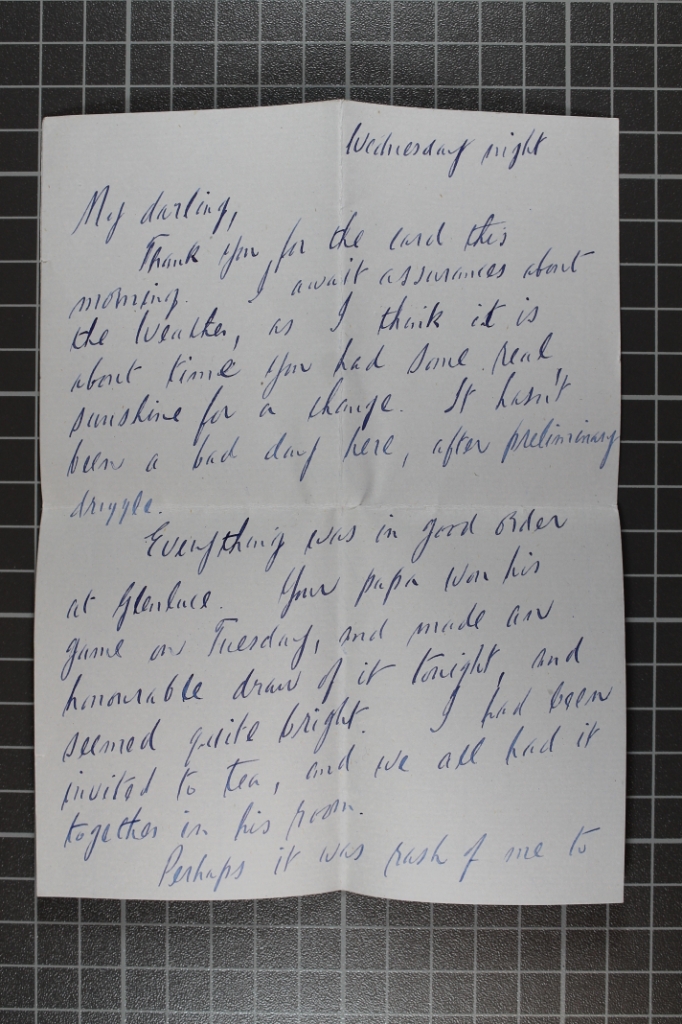 Wednesday night
My darling,
Thank you for the card this
morning. I await assurances about
the weather, as I think it is
about time you had some real
sunshine for a change. It hasn't
been a bad day here, after preliminary
drizzle.
Everything was in good order
at Glenluce. Your papa won his
game on Tuesday, and made an
honourable draw of it tonight, and
seemed quite bright. I had been
invited to tea, and we all had it
together in his room.
Perhaps it was rash of me to